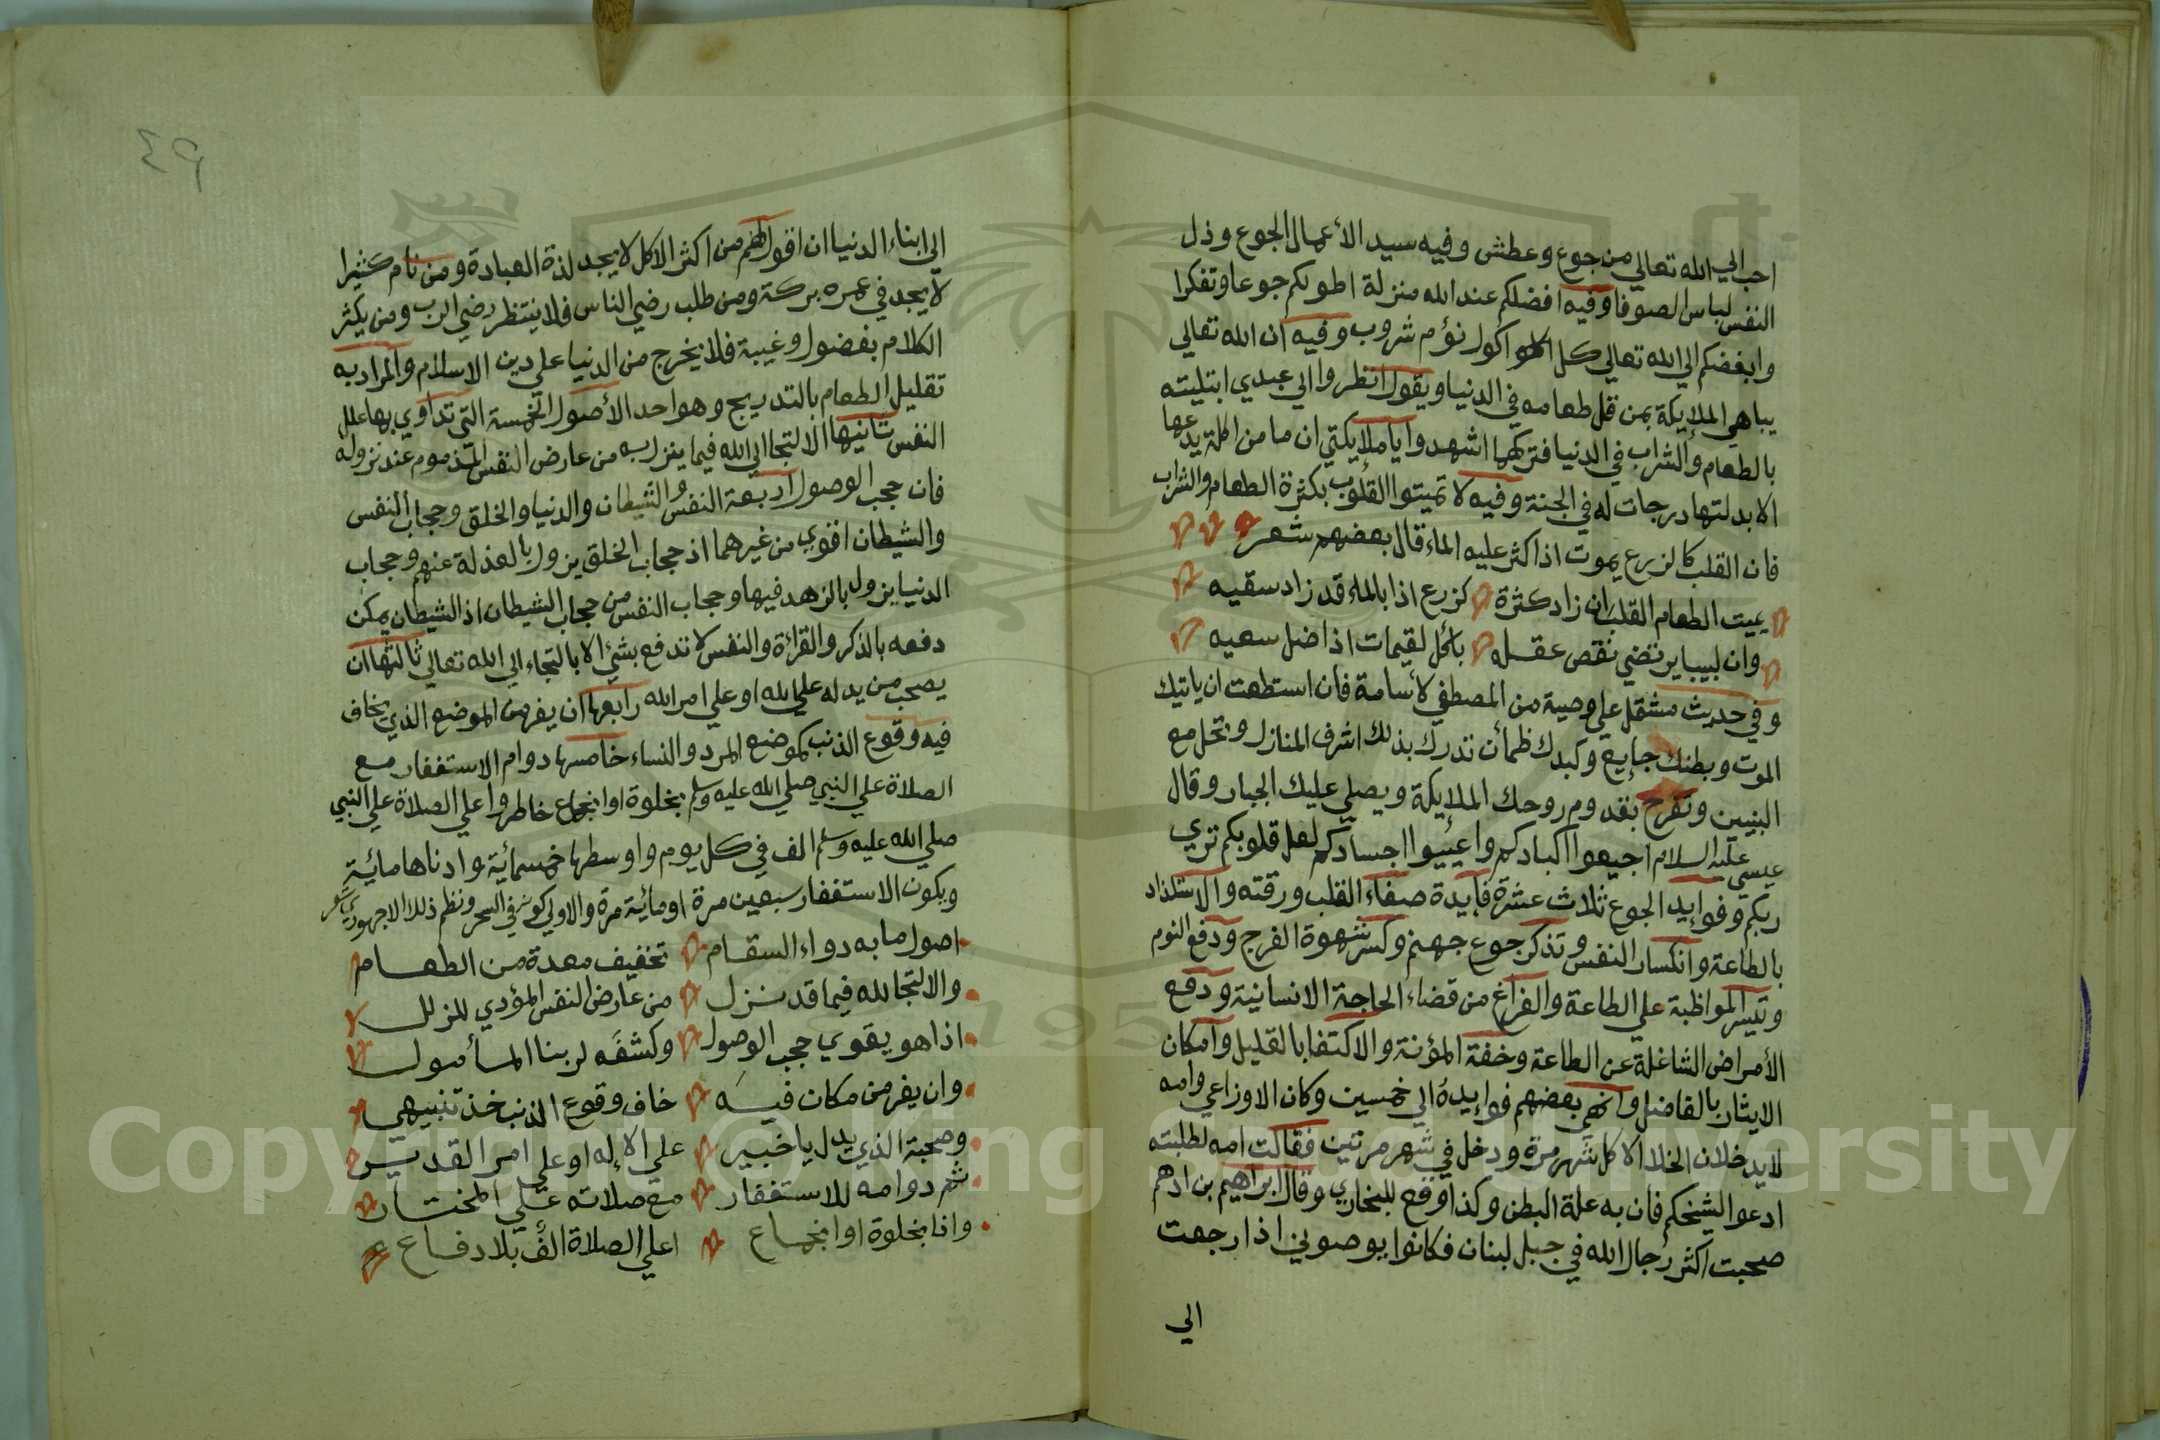 احب الي الله تعالي من جوع وعطش وفيه سيد الأعمال الجوع وذل
النفس لباس الصوف وفيه افضلكم عند الله منزلة اطولكم جوعا وتفكرا
وابغضكم الي الله تعالي كل اكول نؤم شروب وفيه ان الله تعالي
يباهي الملايكة بمن قل طعامه في الدنيا ويقول انظروا الي عبدي ابتليته
بالطعام والشراب في الدنيا فتركهما اشهدوا يا ملايكتي ان ما من اكلة يدعها
الا بدلتها درجات له في الجنة وفيه لا تميتوا القلوب بكثرة الطعام والشراب
فان القلب كالزرع يموت اذا كثر عليه الماء قال بعضهم شعر
يميت الطعام القلب ان زاد كثرة كزرع اذا بالماء قد زاد سقيه
وان لبيبا يرتضي نقص عقله باكل لقيمات اذا ضل سعيه
وفي حديث مشتمل علي وصية من المصطفي لأسامة فان استطعت ان ياتيك
الموت وبطنك جايع وكبدك ظمأن تدرك بذلك اشرف المنازل وتحل مع
النبيين وتفرح بقدوم روحك الملايكة ويصلي عليك الجبار وقال
عيسي عليه السلام اجيعوا اكبادكم واعيوا اجسادكم لعل قلوبكم تري
ربكم وفوايد الجوع ثلاث عشرة فايدة صفاء القلب ورقته والاستلذاذ
بالطاعة وانكسار النفس وتذكر جوع جهنم وكسر شهوة الفرج ودفع النوم
وتيسر المواظبة علي الطاعة والفراغ من قضاء الحاجة الانسانية ودفع
الأمراض الشاغلة عن الطاعة وخفة المؤنة والاكتفا بالقليل وامكان
الايثار بالفاضل وانهى بعضهم فوايده الي خمسين وكان الاوزاعي وامه
لا يدخلان الخلا الا كل شهر مرة ودخل في شهر مرتين فقالت امه لطلبته
ادعوا لشيخكم فان به علة البطن وكذا وقع للبخاري وقال ابراهيم بن ادهم
صحبت اكثر رجال الله في جبل لبنان فكانوا يوصوني اذا رجعت
الي
٤٩
الي ابناء الدنيا ان اقول لهم من اكثر الاكل لا يجد لذة العبادة ومن نام كثيرا
لا يجد في عمره بركة ومن طلب رضي الناس فلا ينتظر رضي الرب ومن يكثر
الكلام بفضول وغيبة فلا يخرج من الدنيا علي دين الاسلام والمراد به
تقليل الطعام بالتدريج وهو احد الأصول الخمسة التي تداوي بها علل
النفس ثانيها الالتجا الي الله فيما ينزل به من عارض النفس المذموم عند نزوله
فان حجب الوصول اربعة النفس والشيطان والدنيا والخلق وحجاب النفس
والشيطان اقوي من غيرهما اذ حجاب الخلق يزول بالعزلة عنهم وحجاب
الدنيا يزول بالزهد فيها وحجاب النفس من حجاب الشيطان اذ الشيطان يمكن
دفعه بالذكر والقرأة والنفس لا تدفع بشئ الا بالتجاء الي الله تعالي ثالثها ان
يصحب من يدله علي الله او علي امر الله رابعها ان يفر من الموضع الذي يخاف
فيه وقوع الذنب كموضع المرد والنساء خامسها دوام الاستغفار مع
الصلاة علي النبي صلي الله عليه وسلم بخلوة او انجماع خاطر واعلي الصلاة علي النبي
صلي الله عليه وسلم الف في كل يوم واوسطها خمسمائية وادناها مائية
ويكون الاستغفار سبعين مرة او مائية مرة والاولي كونه في السحر ونظم ذلك الاجهوري شعر
اصول ما به دواء السقام تخفيف معدة من الطعام
والالتجا لله فيما قد نزل من عارض النفس المؤدي للزلل
اذا هو يقوي حجب الوصول وكشفه لربنا المأمول
وان يفر من مكان فيه خاف وقوع الذنب خذ تنبيهي
وصحبة الذي يدل يا خبير علي الاله او علي امر القدير
ثم دوامه للاستغفار مع صلاته علي المختار
وانا بخلوة او انجماع اعلي الصلاة الف بلا دفاع
Copyright © King Saud University
195